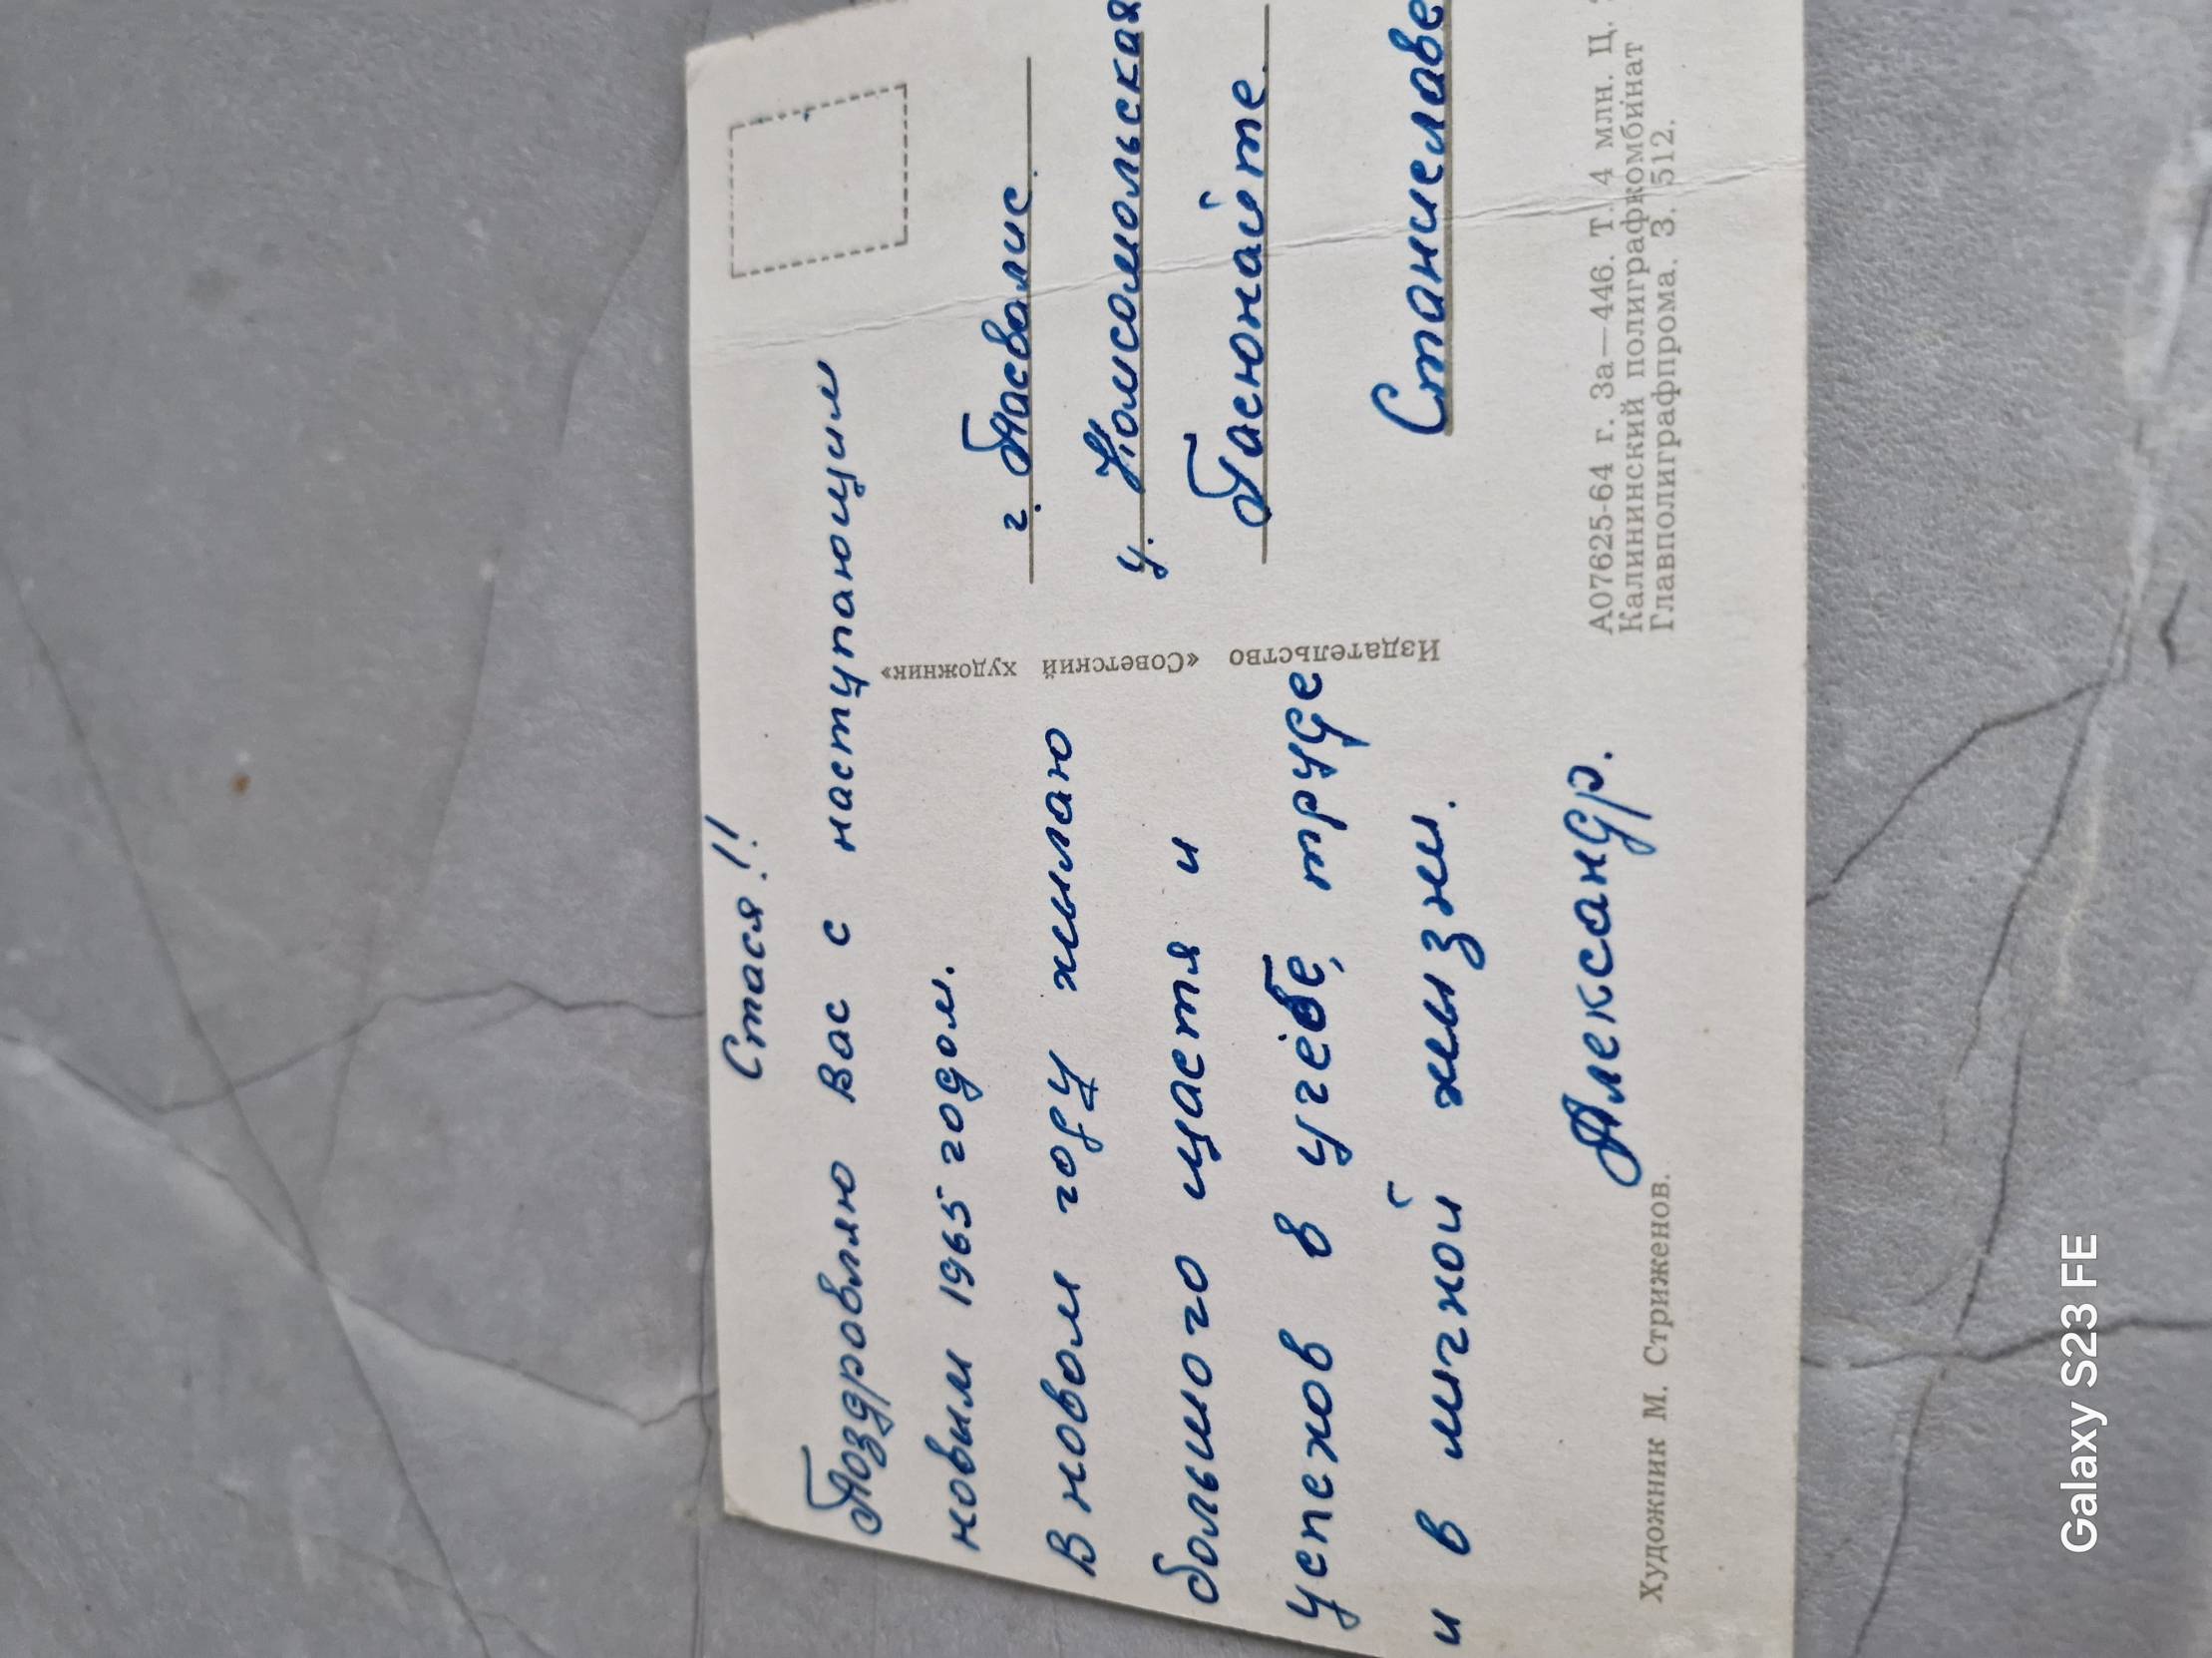 Стася!!
Поздровляю Вас с наступающим
новым 1965 годом.
В новом году жылаю
большого щастя и
успехов в учебе, труде
и в личной жызни.
Александр.
Художник М. Стриженов.
Издательство «Советский художник»
г. Пасвалис.
у. Комсомольская
Пасюнайте.
Станиславе
А07625-64 г. За—446. Т. 4 млн. Ц.
Калининский полиграфкомбинат
Главполиграфпрома. З. 512.
Galaxy S23 FE